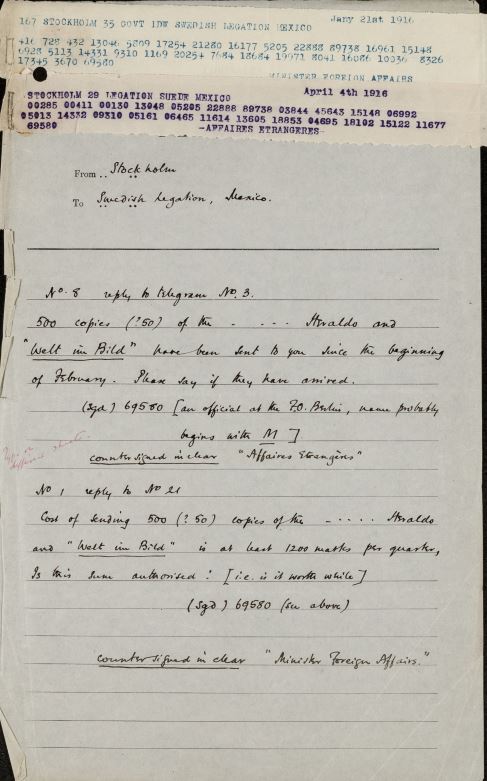 167 STOCKHOLM 35 GOVT IDW SWEDISH LEGATION MEXICO Jany 21st 1916
416 728 432 13046 5809 17254 21280 16177 5205 22888 89738 16961 15148
6928 5113 14331 9310 1169 20254 7684 18684 19971 8041 16086 10036 8326
17345 3670 69580
MINISTER FOREIGN AFFAIRS
STOCKHOLM 29 LEGATION SUEDE MEXICO April 4th 1916
00285 00411 00130 13048 05205 22888 89738 03844 45643 15148 06992
05013 14332 09310 05161 06465 11614 13605 18853 04695 18102 15122 11677
69580 -AFFAIRES ETRANGERES-
From .. Stockholm
To Swedish Legation, Mexico.
No. 8 reply to telegram No. 3.
500 copies (?50) of the - . . . . Heraldo and
"Welt im Bild" have been sent to you since the beginning
of February. Please say if they have arrived.
(Sgd) 69580 [an official at the F.O. Berlin, name probably
begins with M ]
countersigned in clear "Affaires Etrangères"
No 1 reply to No 21
Cost of sending 500 (? 50) copies of the - . . . . Heraldo
and "Welt im Bild" is at least 1200 marks per quarter,
Is this sum authorised? [i.e. is it worth while]
(Sgd) 69580 (see above)
countersigned in clear "Minister Foreign Affairs."